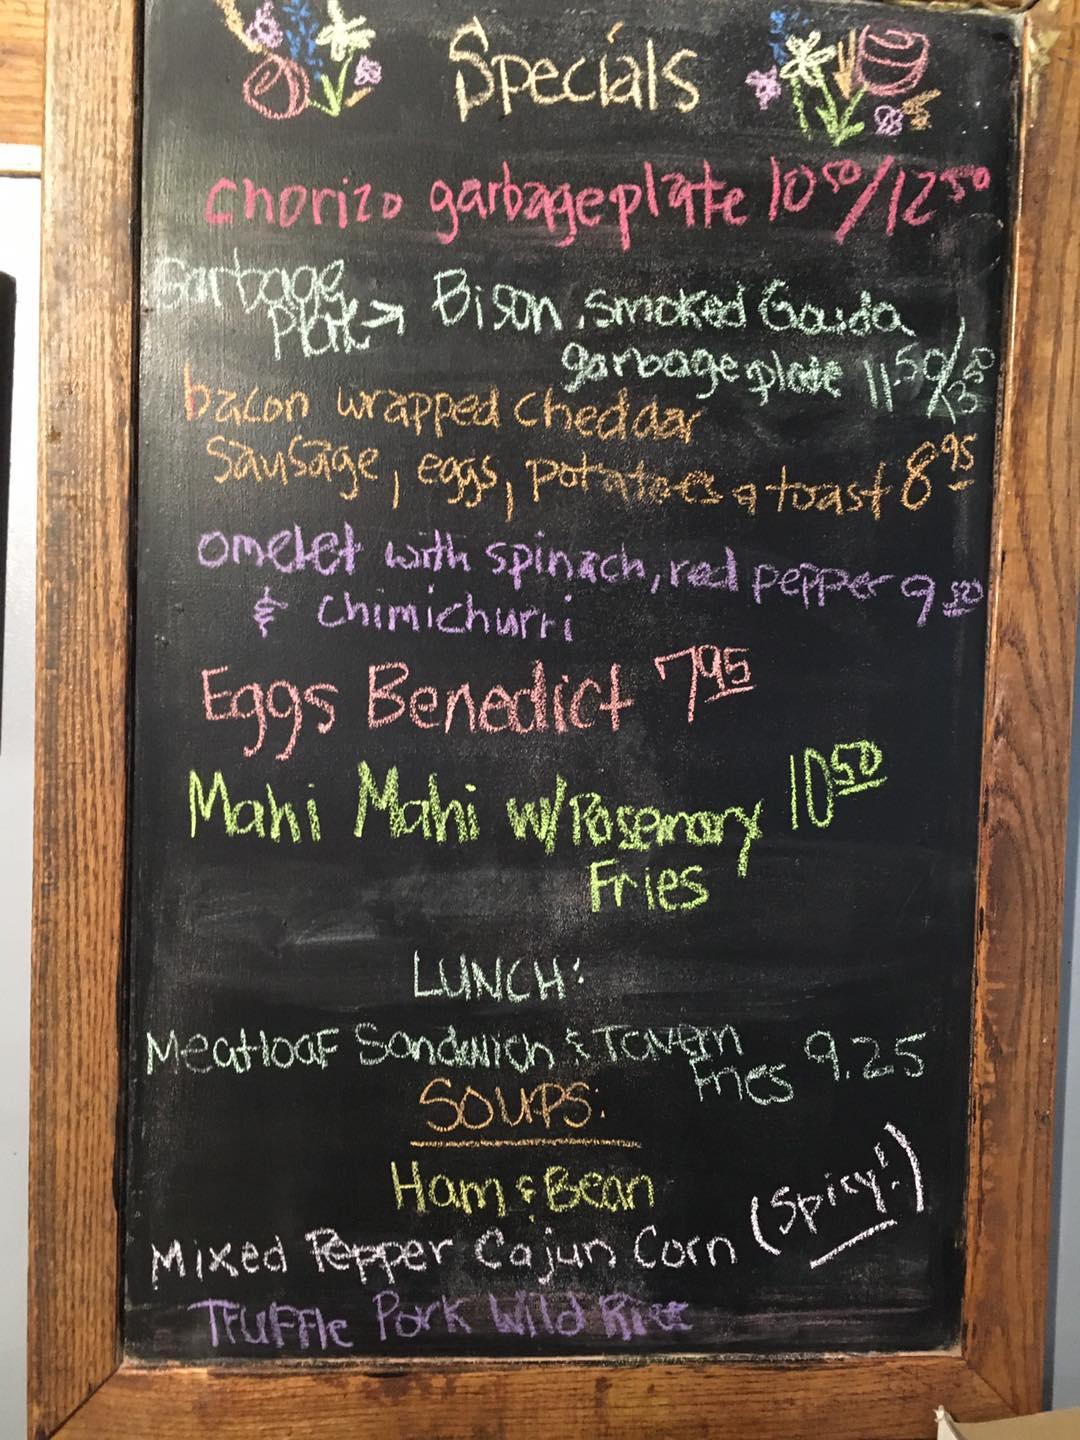 Specials
Chorizo garbage plate 10 50/12 50
Garbage
Plate → Bison, Smoked Gouda
garbage plate 11 50/13 50
bacon wrapped cheddar
Sausage, eggs, potatoes & toast 8 95
omelet with spinach, red pepper 9 50
& chimichurri
Eggs Benedict 7 95
Mahi Mahi w/Rosemary 10 50
Fries
LUNCH:
Meatloaf Sandwich & Tavern
Fries 9.25
SOUPS:
Ham & Bean
Mixed Pepper Cajun Corn (Spicy!)
Truffle Pork Wild Rice